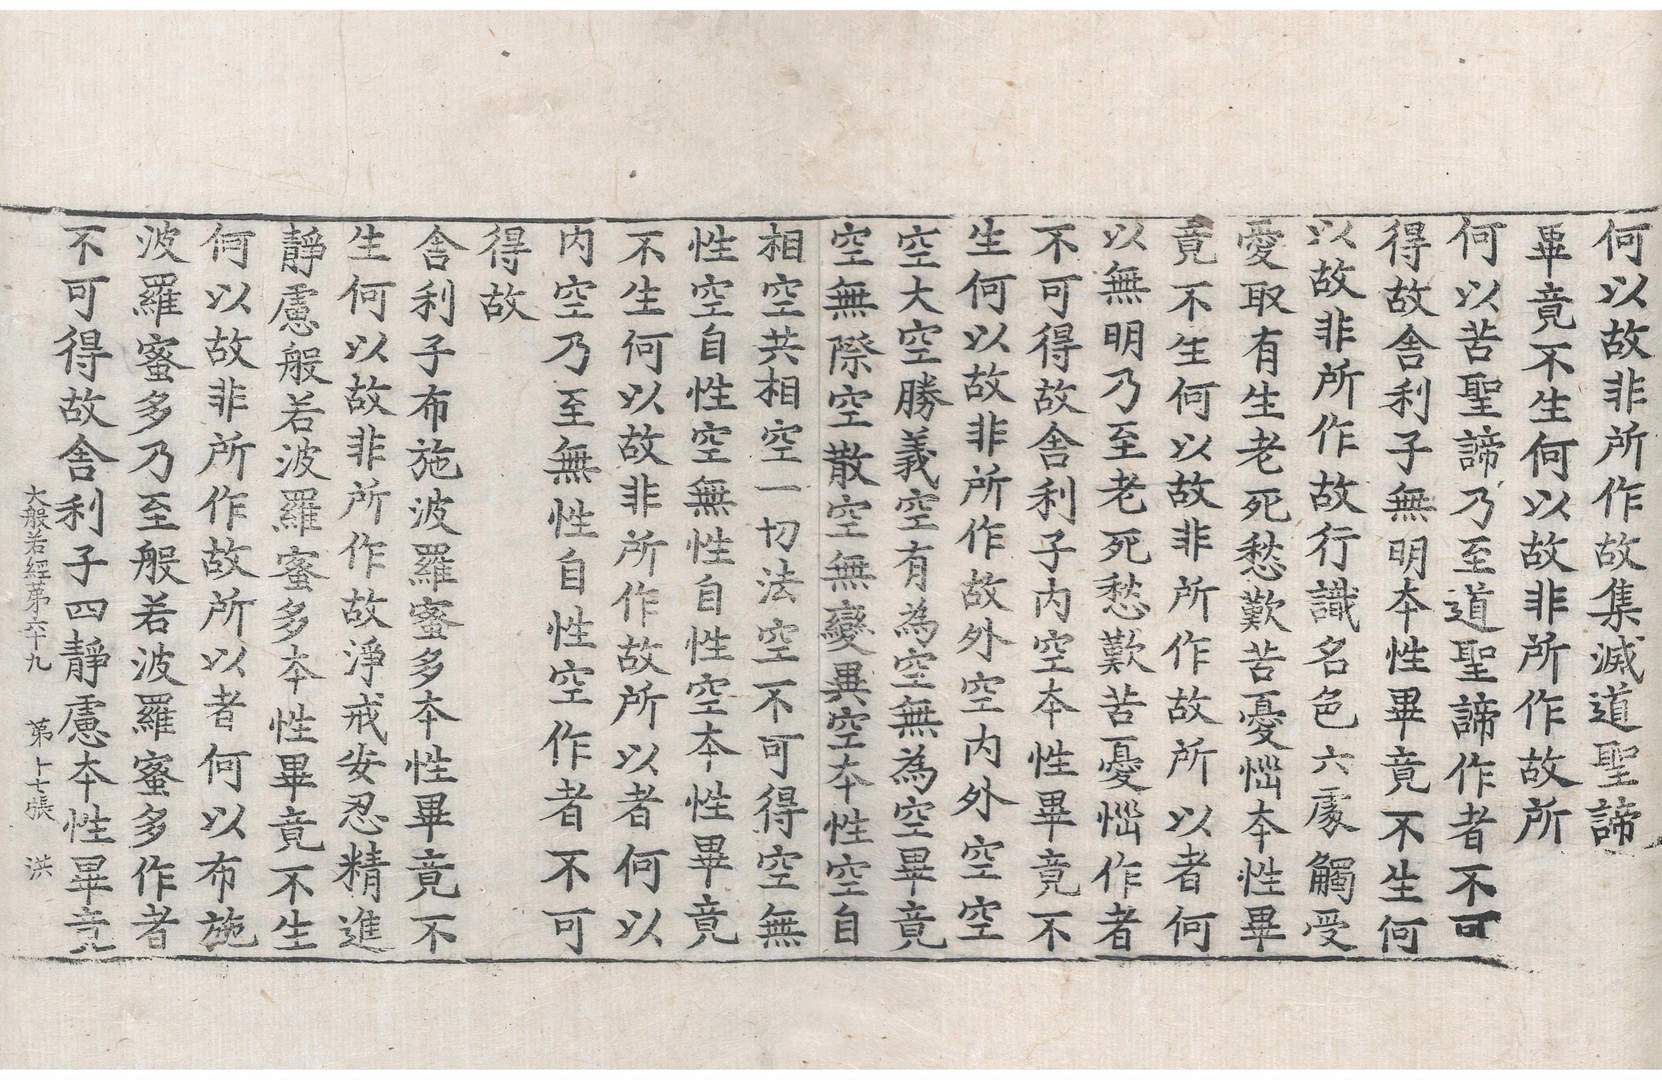 何以故非所作故集滅道聖諦
畢竟不生何以故非所作故所
何以苦聖諦乃至道聖諦作者不可
得故舍利子無明本性畢竟不生何
以故非所作故行識名色六處觸受
愛取有生老死愁歎苦憂惱本性畢
竟不生何以故非所作故所以者何
以無明乃至老死愁歎苦憂惱作者
不可得故舍利子內空本性畢竟不
生何以故非所作故外空內外空空
空大空勝義空有為空無為空畢竟
空無際空散空無變異空本性空自
相空共相空一切法空不可得空無
性空自性空無性自性空本性畢竟
不生何以故非所作故所以者何以
內空乃至無性自性空作者不可
得故
舍利子布施波羅蜜多本性畢竟不
生何以故非所作故淨戒安忍精進
靜慮般若波羅蜜多本性畢竟不生
何以故非所作故所以者何以布施
波羅蜜多乃至般若波羅蜜多作者
不可得故舍利子四靜慮本性畢竟
大般若經第六十九 第十七張 洪